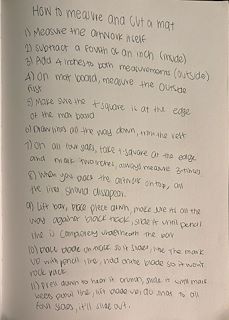 How to measure and cut a mat
1) Measure the artwork itself
2) Subtract a fourth of an inch (inside)
3) Add 4 inches to both measurements (outside)
4) On mat board, measure the outside
first
5) Make sure the t-square is at the edge
of the mat board
6) Draw lines all the way down, then the rest
7) On all four sides, take t-square at the edge
and mark two inches, always measure 3 times
8) When you place the artwork on top, all
the lines should disappear.
9) Lift bar, place piece down, make sure its all the
way against black hook, slide it until pencil
line is completely underneath the bar
10) place blade on mat so it lines, line the mark
up with pencil line, hold blade so it won't
rock back
11) Press down to hear it crunch, slide it until mark
meets pencil line, lift blade up, do this to all
four sides, it'll slide out.